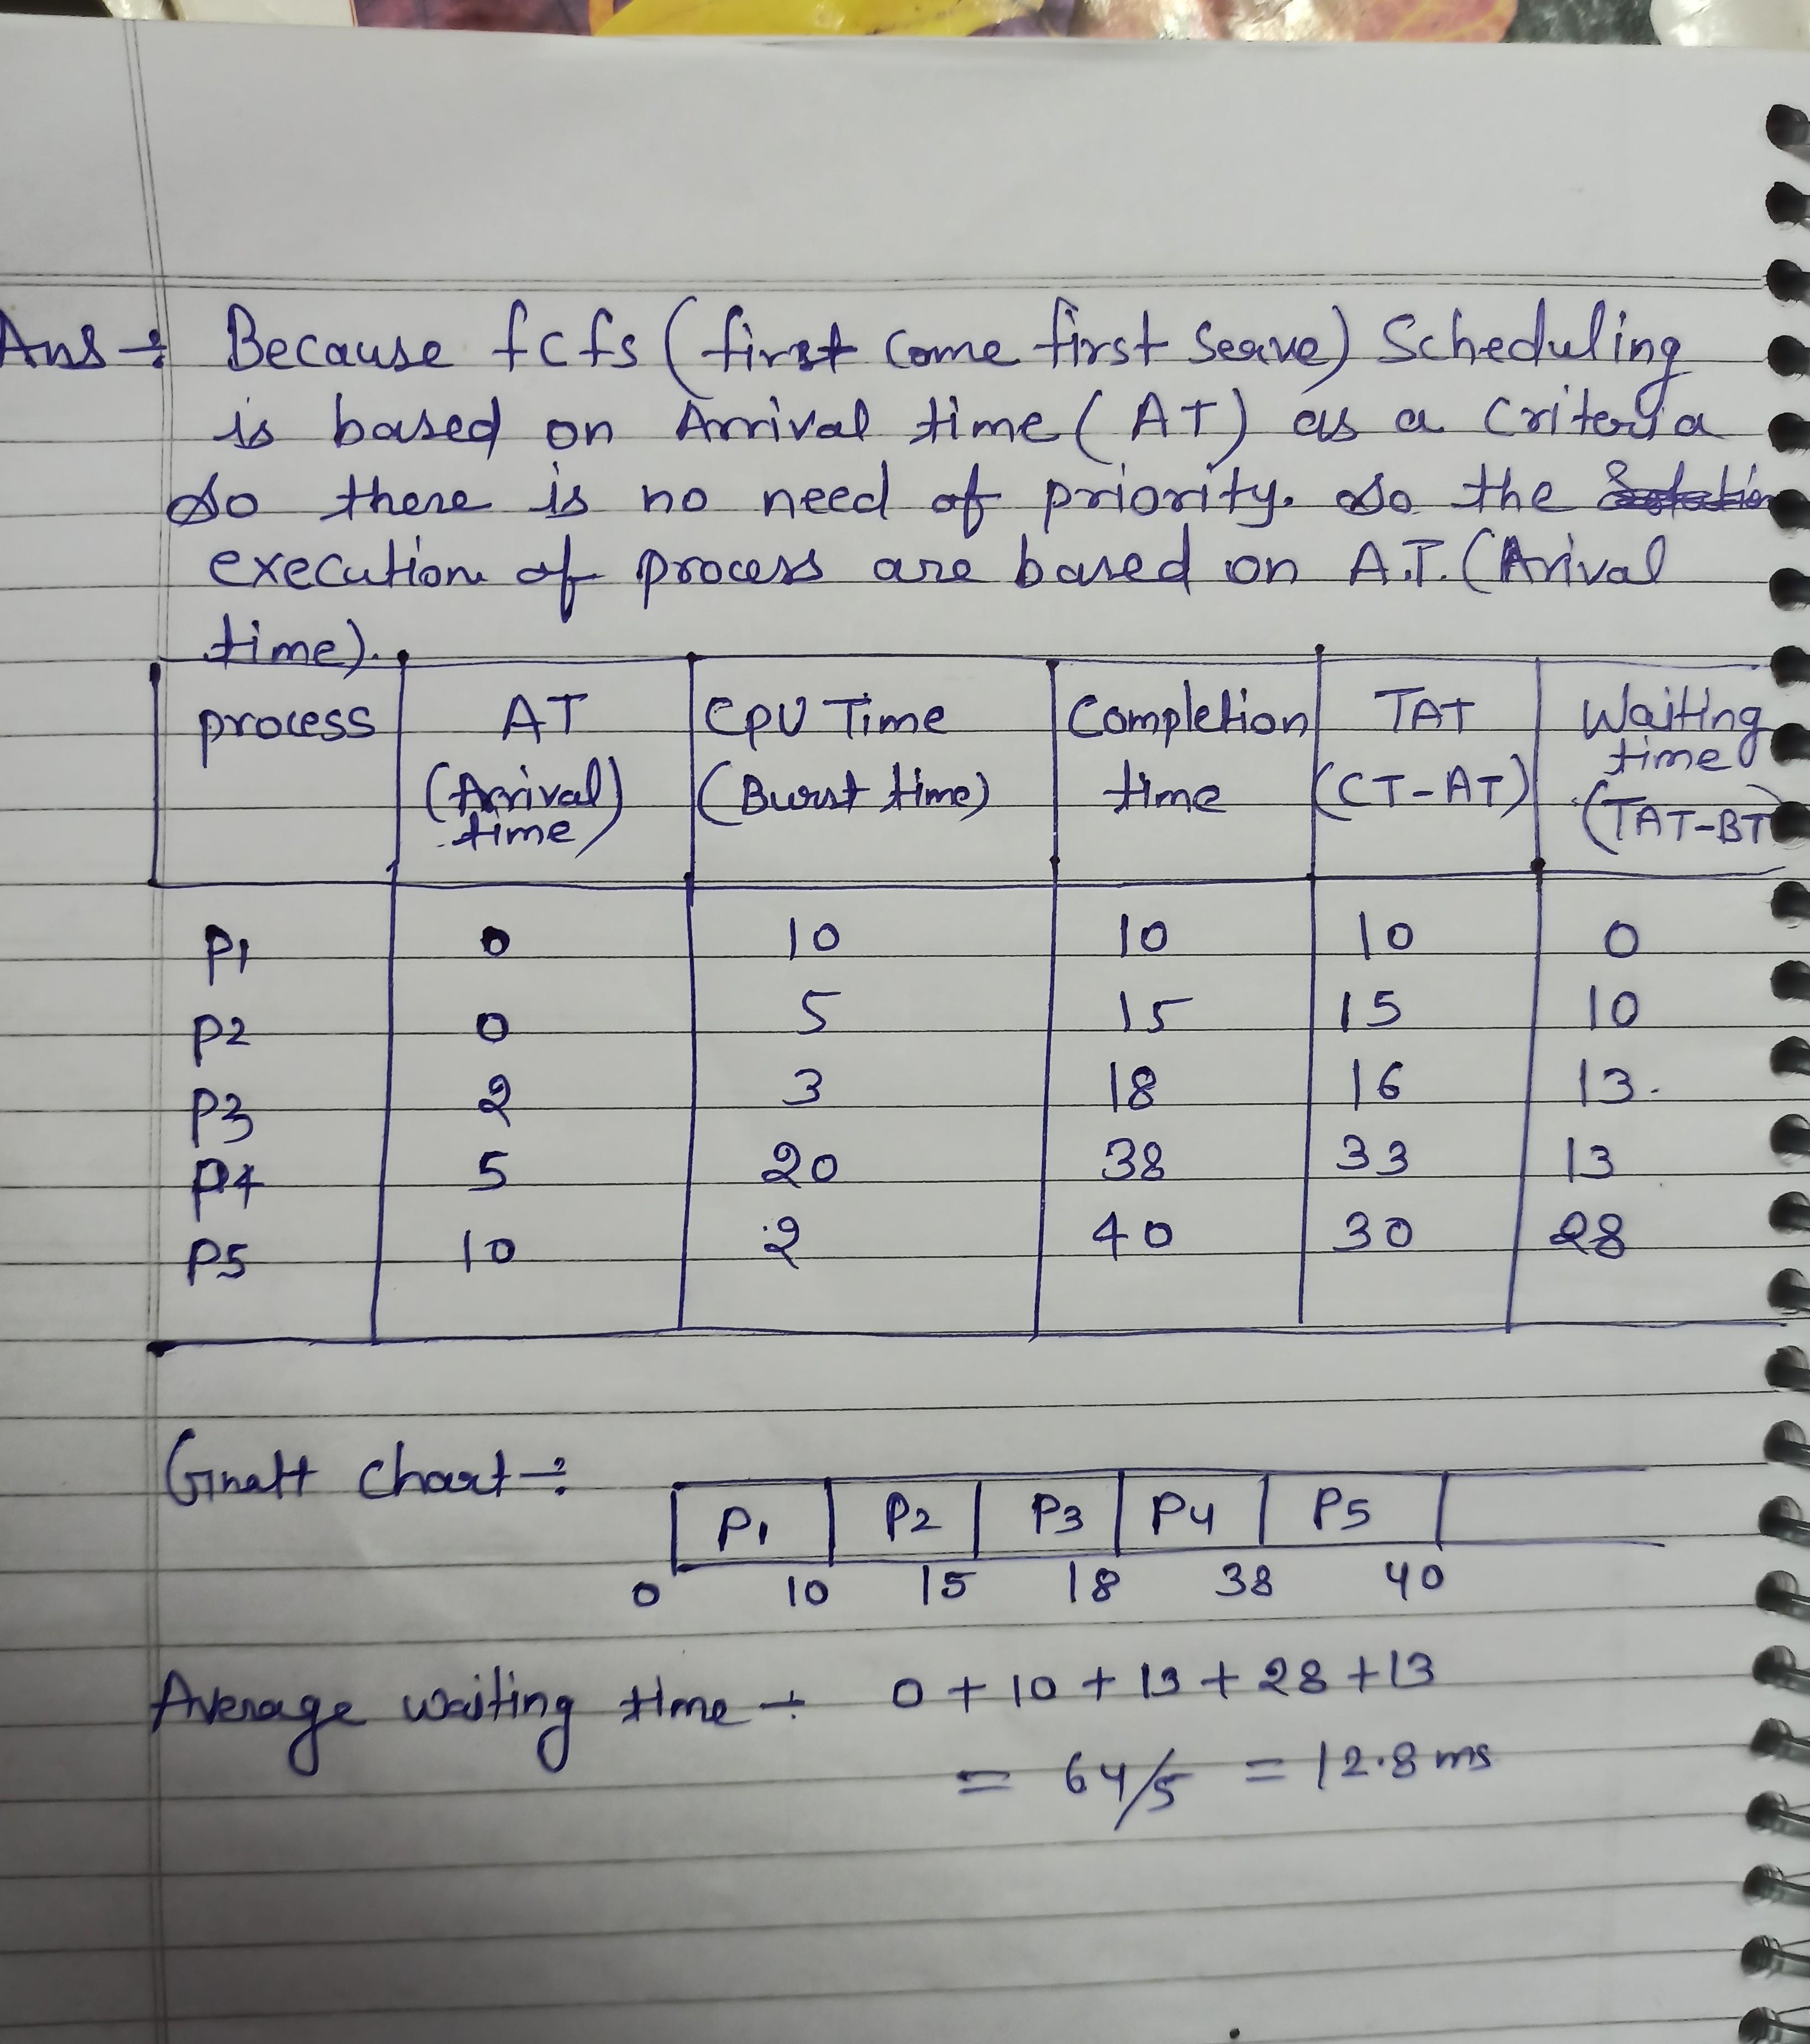 Ans :- Because fcfs (first come first serve) Scheduling
is based on Arrival time (AT) as a criteria
so there is no need of priority. so the
execution of process are based on A.T. (Arival
time).
process AT CPU Time Completion TAT Waiting
time
(Arrival) (Burst time) time (CT-AT) (TAT-BT
time
P1 0 10 10 10 0
P2 0 5 15 15 10
P3 2 3 18 16 13
P4 5 20 38 33 13
P5 10 2 40 30 28
Gnatt chart :-
P1 P2 P3 P4 P5
0 10 15 18 38 40
Average waiting time :- 0 + 10 + 13 + 28 + 13
= 64/5 = 12.8 ms